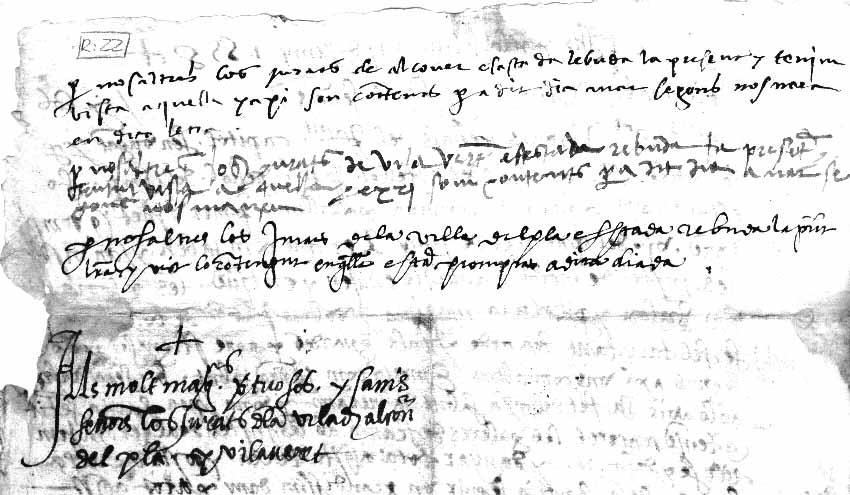 R:22
p nosaltres los jurats de alcover es estada rebuda la present y tenim
vista aquella y axi som contents p a dit dia anar segons nos mana
en dita letra
p nosaltres los jurats de vila vert es estada rebuda la present
tenim vista aquella y axi som contents p a dit dia anar se
gons nos mana
p nosaltres los Jurats dela villa del pla es stada rebuda la pnt
lra y vist lo contengut en qlla e stã promptes a dita diada
Als molt magchs. y sauis
senyors los Jurats dla vila d alcouer
del pla y vilavert